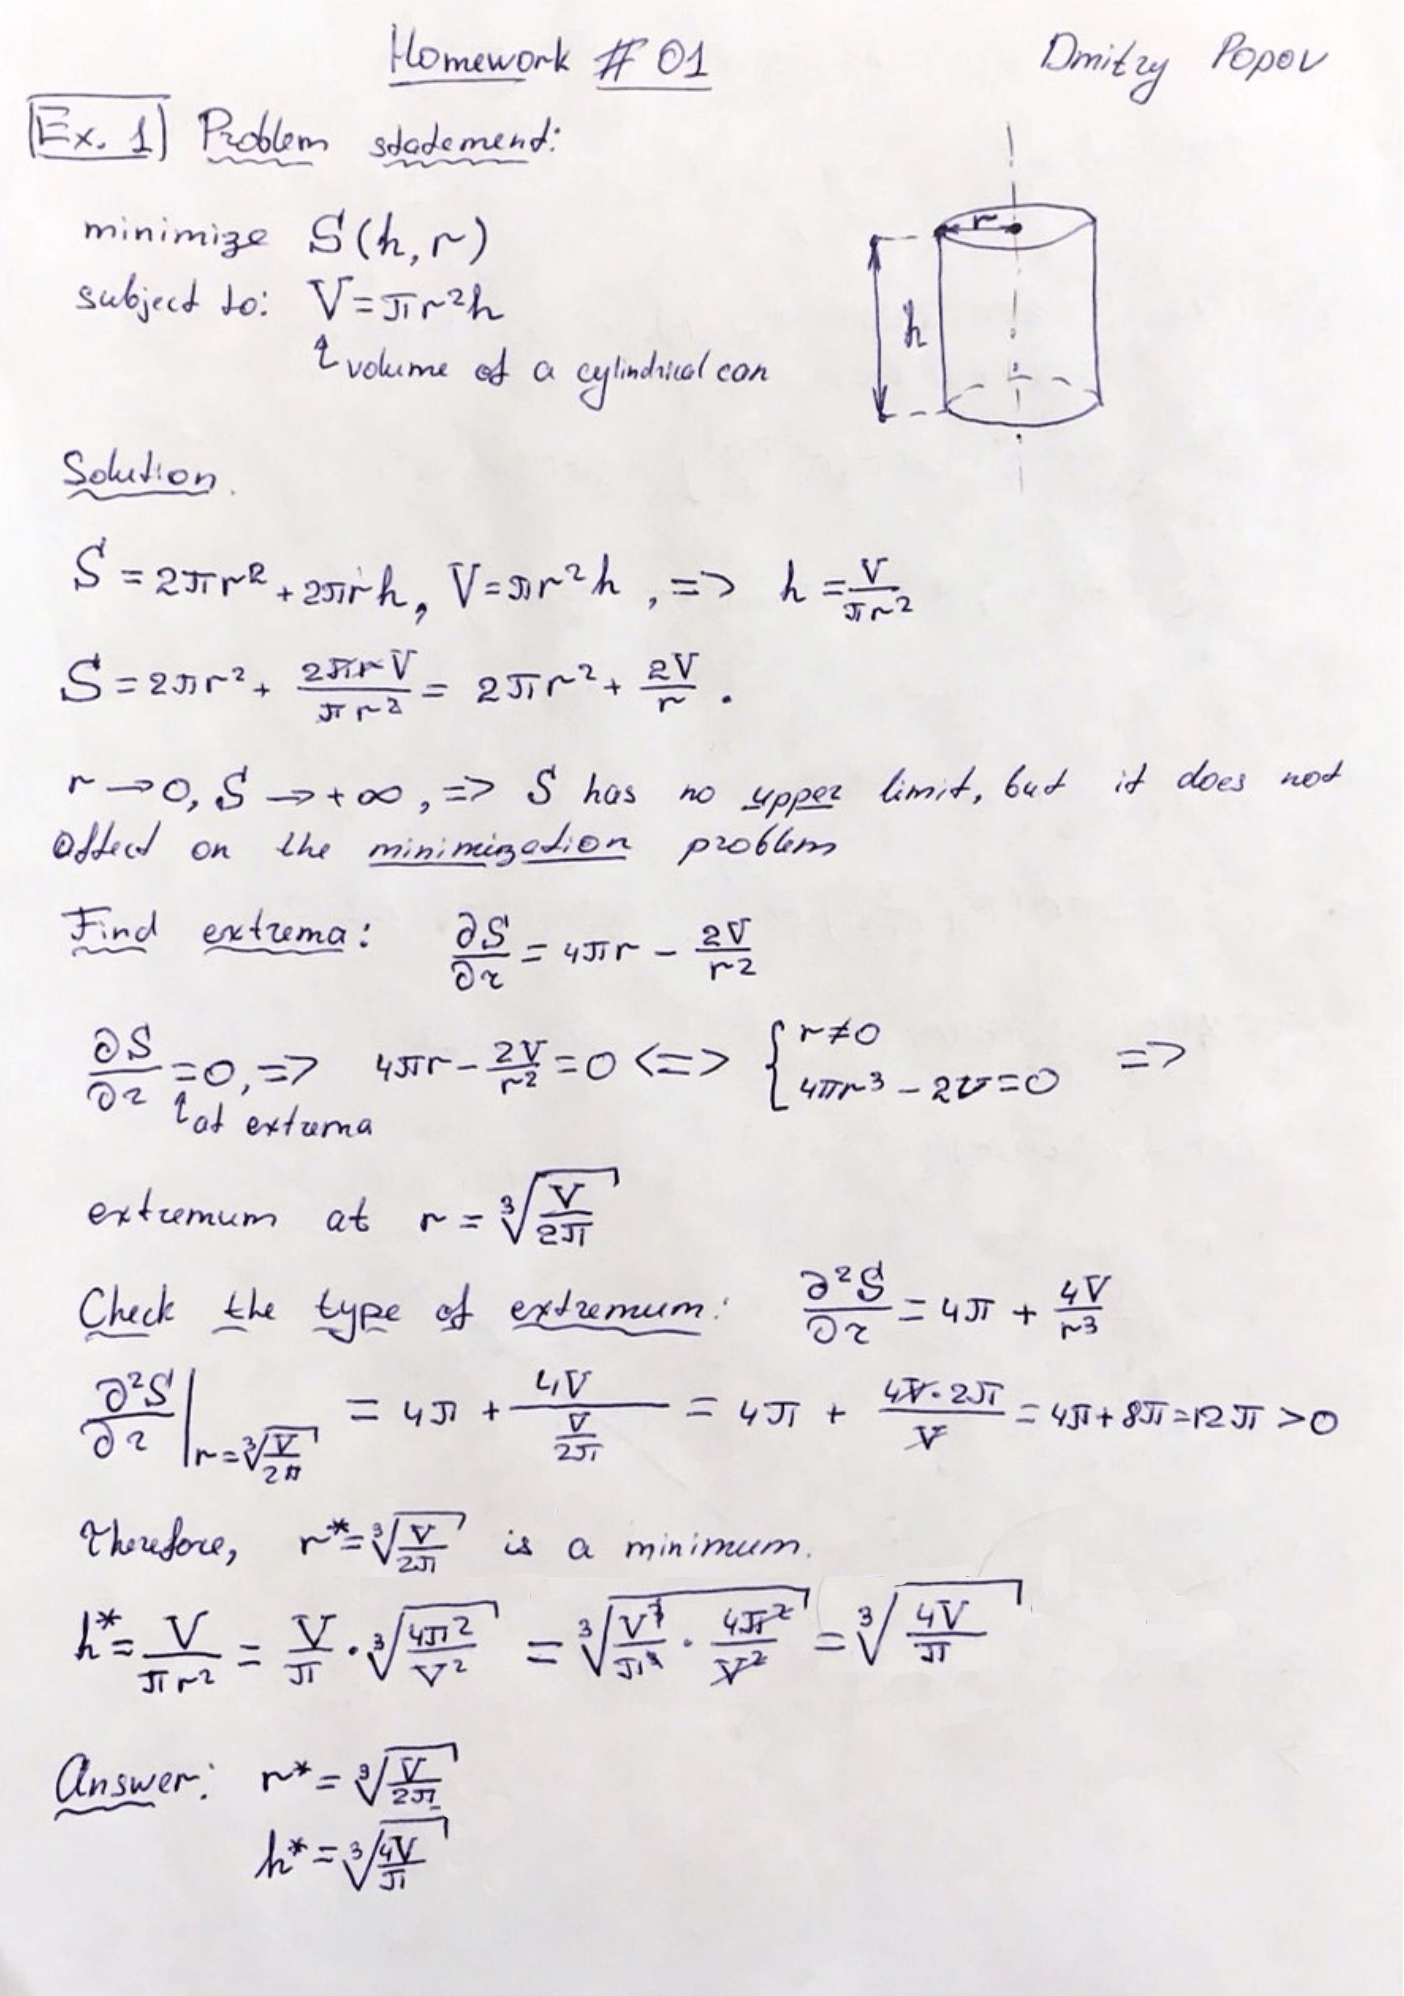 Homework # 01
Dmitry Popov
Ex. 1 Problem statement:
minimize S(h, r)
subject to: V = πr²h
↑ volume of a cylindrical can
r
h
Solution.
S = 2πr² + 2πrh, V = πr²h, => h = V/(πr²)
S = 2πr² + 2πrV/(πr²) = 2πr² + 2V/r.
r → 0, S → +∞, => S has no upper limit, but it does not
affect on the minimization problem
Find extrema: ∂S/∂r = 4πr − 2V/r²
∂S/∂r = 0, => 4πr − 2V/r² = 0 <=> { r ≠ 0; 4πr³ − 2V = 0 =>
↑ at extrema
extremum at r = ∛(V/(2π))
Check the type of extremum: ∂²S/∂r = 4π + 4V/r³
∂²S/∂r |r = ∛(V/(2π)) = 4π + 4V/(V/(2π)) = 4π + 4V·2π/V = 4π + 8π = 12π > 0
Therefore, r* = ∛(V/(2π)) is a minimum.
h* = V/(πr²) = V/π · ∛(4π²/V²) = ∛(V³/π³ · 4π²/V²) = ∛(4V/π)
Answer: r* = ∛(V/(2π))
h* = ∛(4V/π)